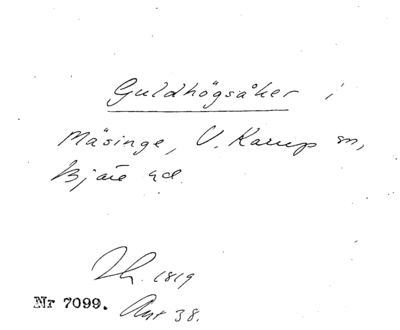 Guldhögsåker i
Mäsinge, V. Karup sn,
Bjäre hd.
Th. 1819
Nr 7099. Ant 38.